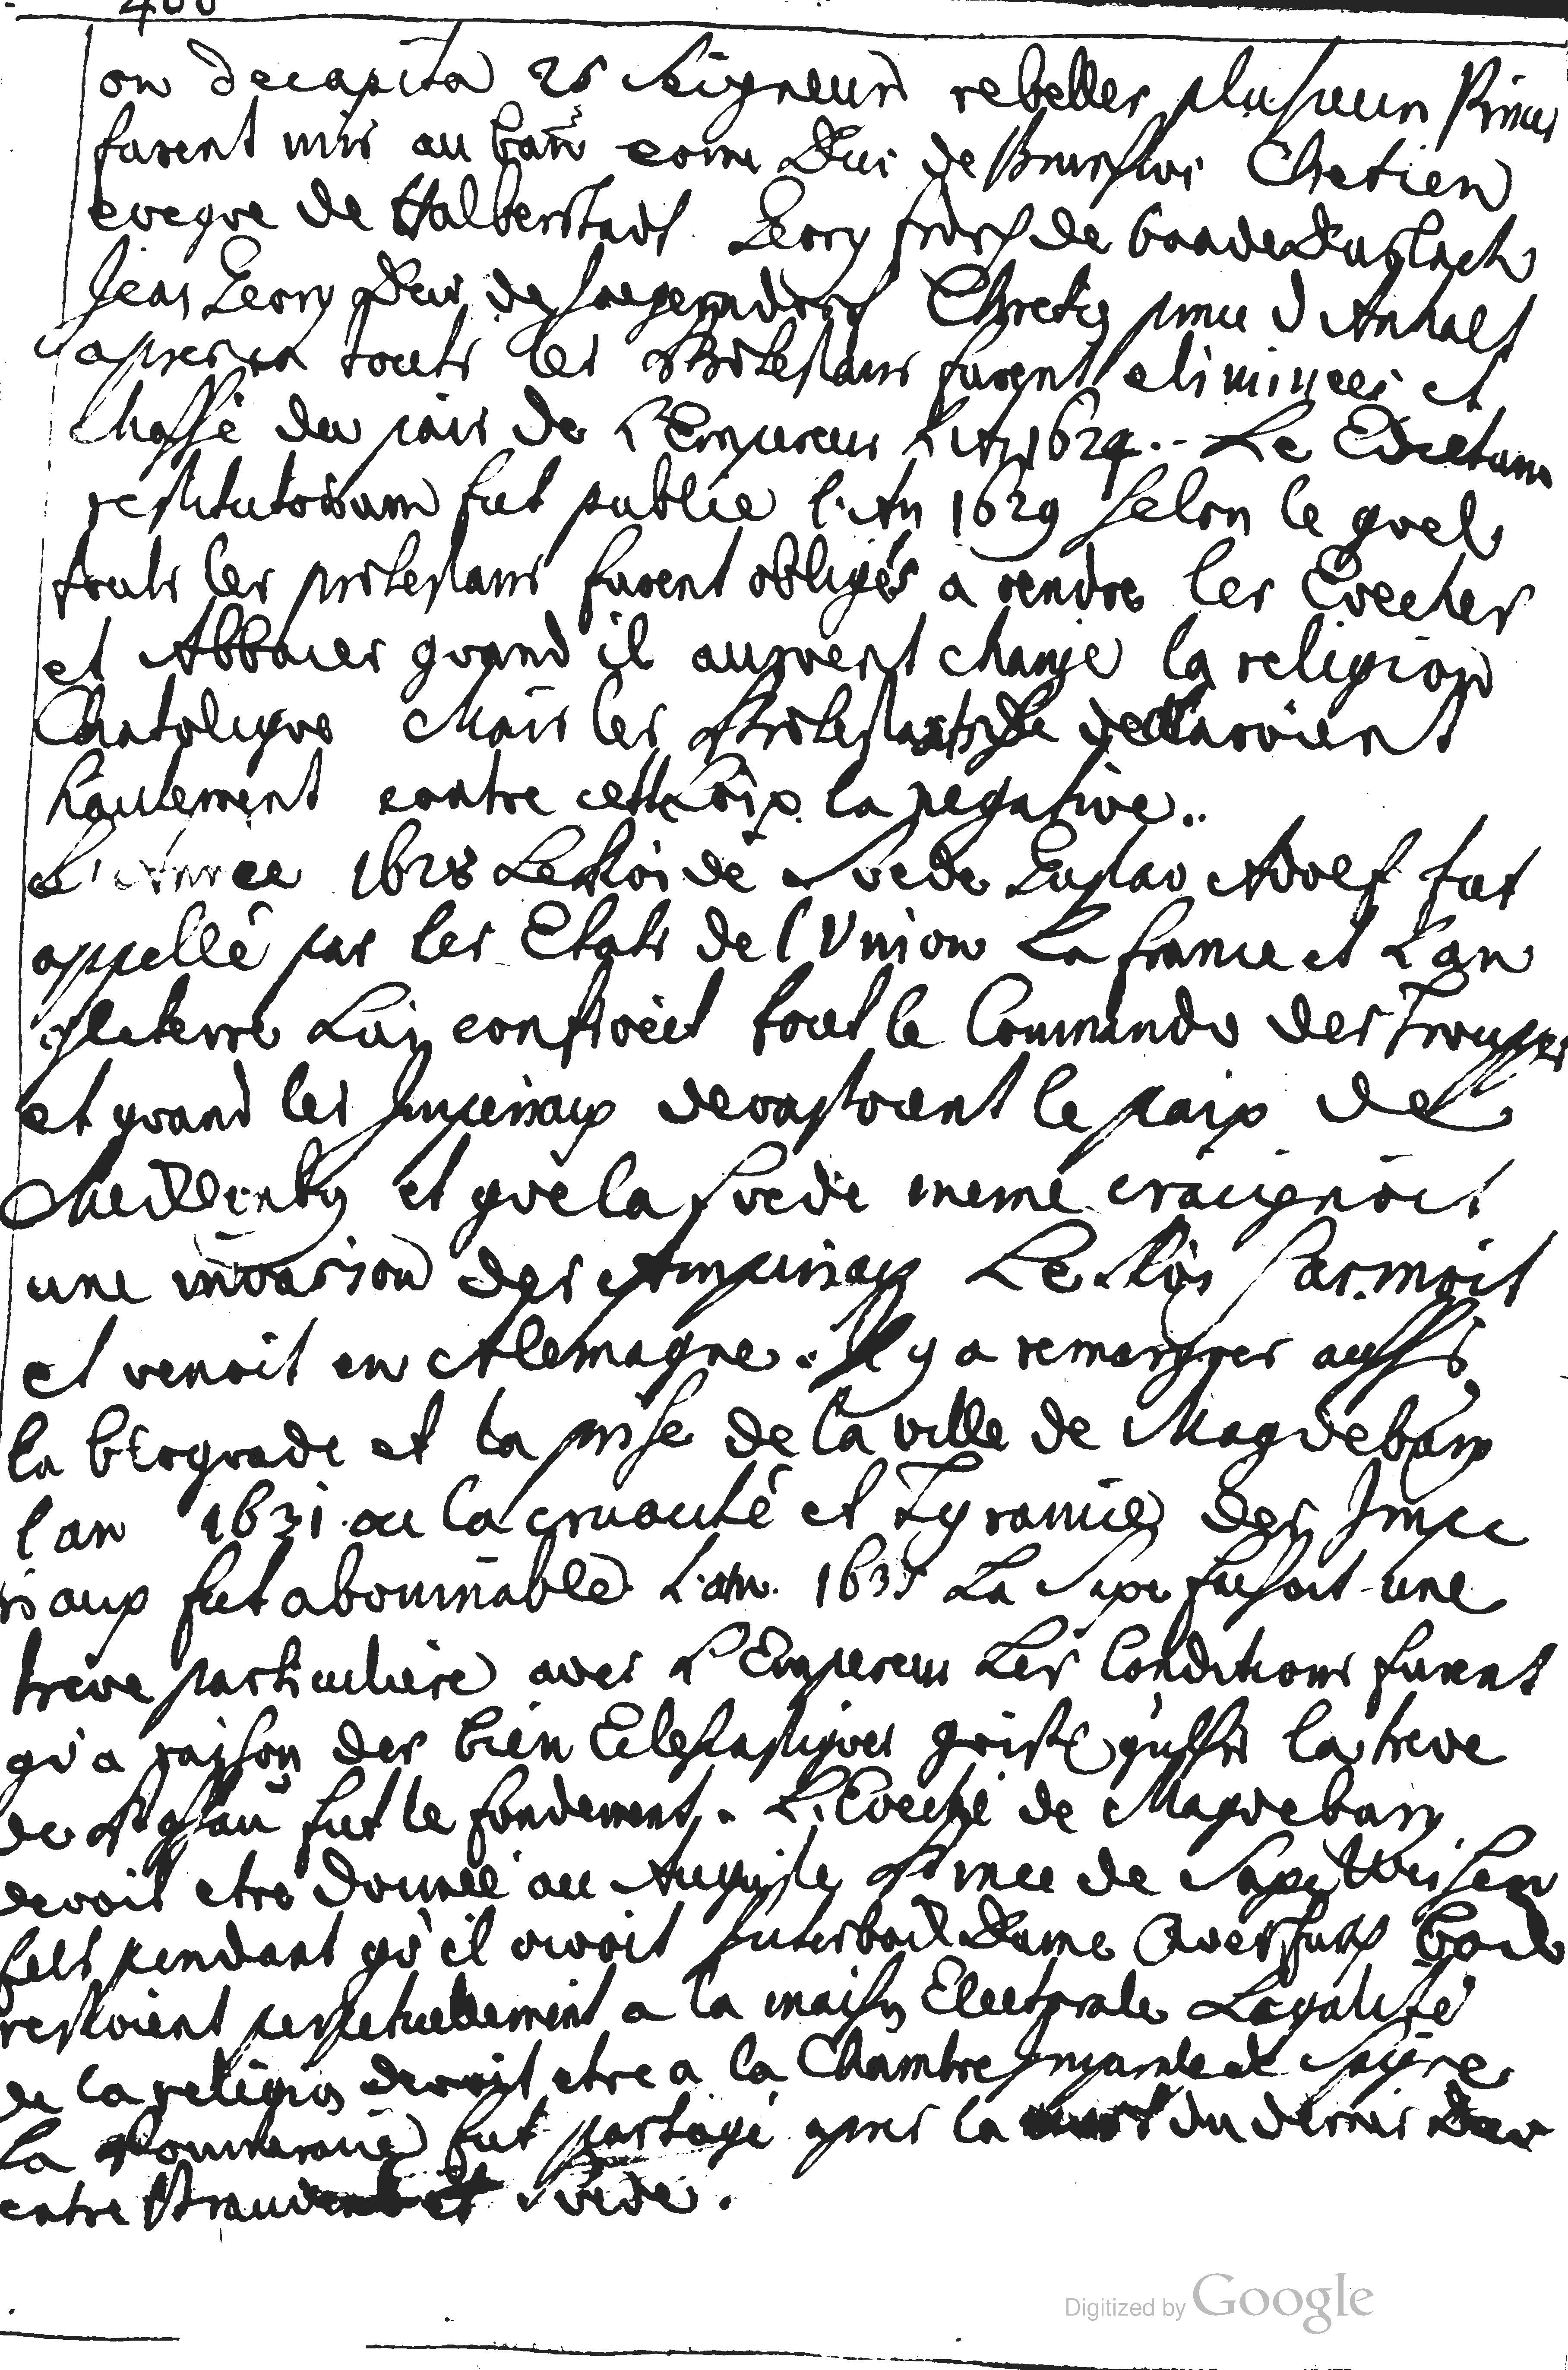 400
on decapita 26 Seigneurs rebelles plusieurs Princes
furent mis au ban come Duc de Brunsvic Chretien
eveque de Halberstadt Georg fridrich de baade Durlach
Jean Georg Duc de Jaegerndorf Chretien prince d Anhalt
apres ca touts les Protestans furent eliminees et
chassé du pais de l'Empereur l'An 1624.. Le Edictum
restitutorium fut publie l'An 1629 selon le quel
touts les protestans furent obligés a rendre les Evechés
et Abbacies quand il auroent change la religion
Chatolique Mais les Protestants declaroient
hautement contre cette loix la negative..
L'Annee 1628 Le Roi de Svede Gustav Adolf fut
appellé par les Etats de l Union La france et L'an
gleterre Lui confroit tout le Commando des Trouppes
et quand les Imperiaux devastoient le paix de
Mecklenbg et que la Svede meme craignoit
une invasion des Imperiaux Le Roi s'armoit
et venoit en Alemagne. Il y a remarquer aussi
la blograde et la prise de la ville de Magdeburg
l an 1631 ou la cruauté et Tyranie des Impe
riaux fut abominable L'an 1635 La Saxe faisoit une
treve particuliere avec L'Empereur Les Conditions furent
qu'a raison des bien Eclesiastiques la treve
de Passau fut le fondement. L'Eveché de Magdeburg
devoit etre donnée au Auguste Prince de Saxe Weisen
fels pendant qu'il vivoit Juterbock Dame Querfurt
restoient perpetuellement a la maison Electorale L'egalité
de la religion devoit etre a la Chambre Imperiale de Spire
la Pommeranie fut partagé apres la mort du dernier Duc
entre Brandenb et Svede.
Digitized by Google